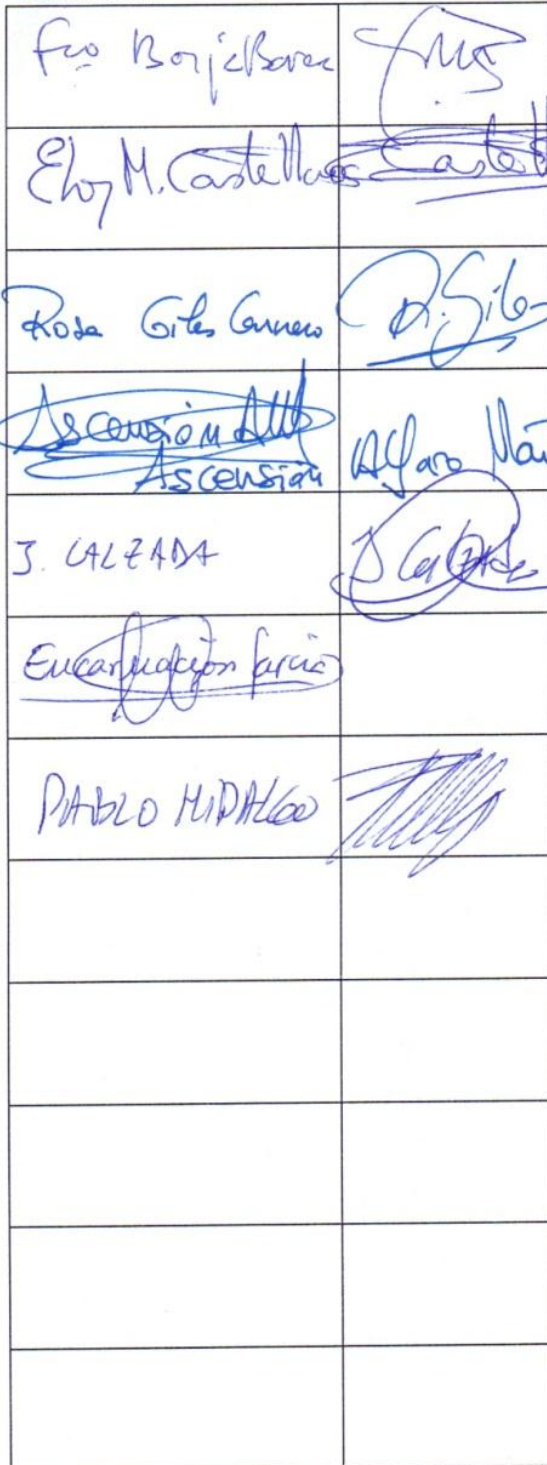 Fco Borja
Eloy M. Castellanos
Rosa Giles Carnero R. Giles
Ascensión
Ascensión Alfaro
J. CALZADA J Calzada
Encarnación García
PABLO HIDALGO